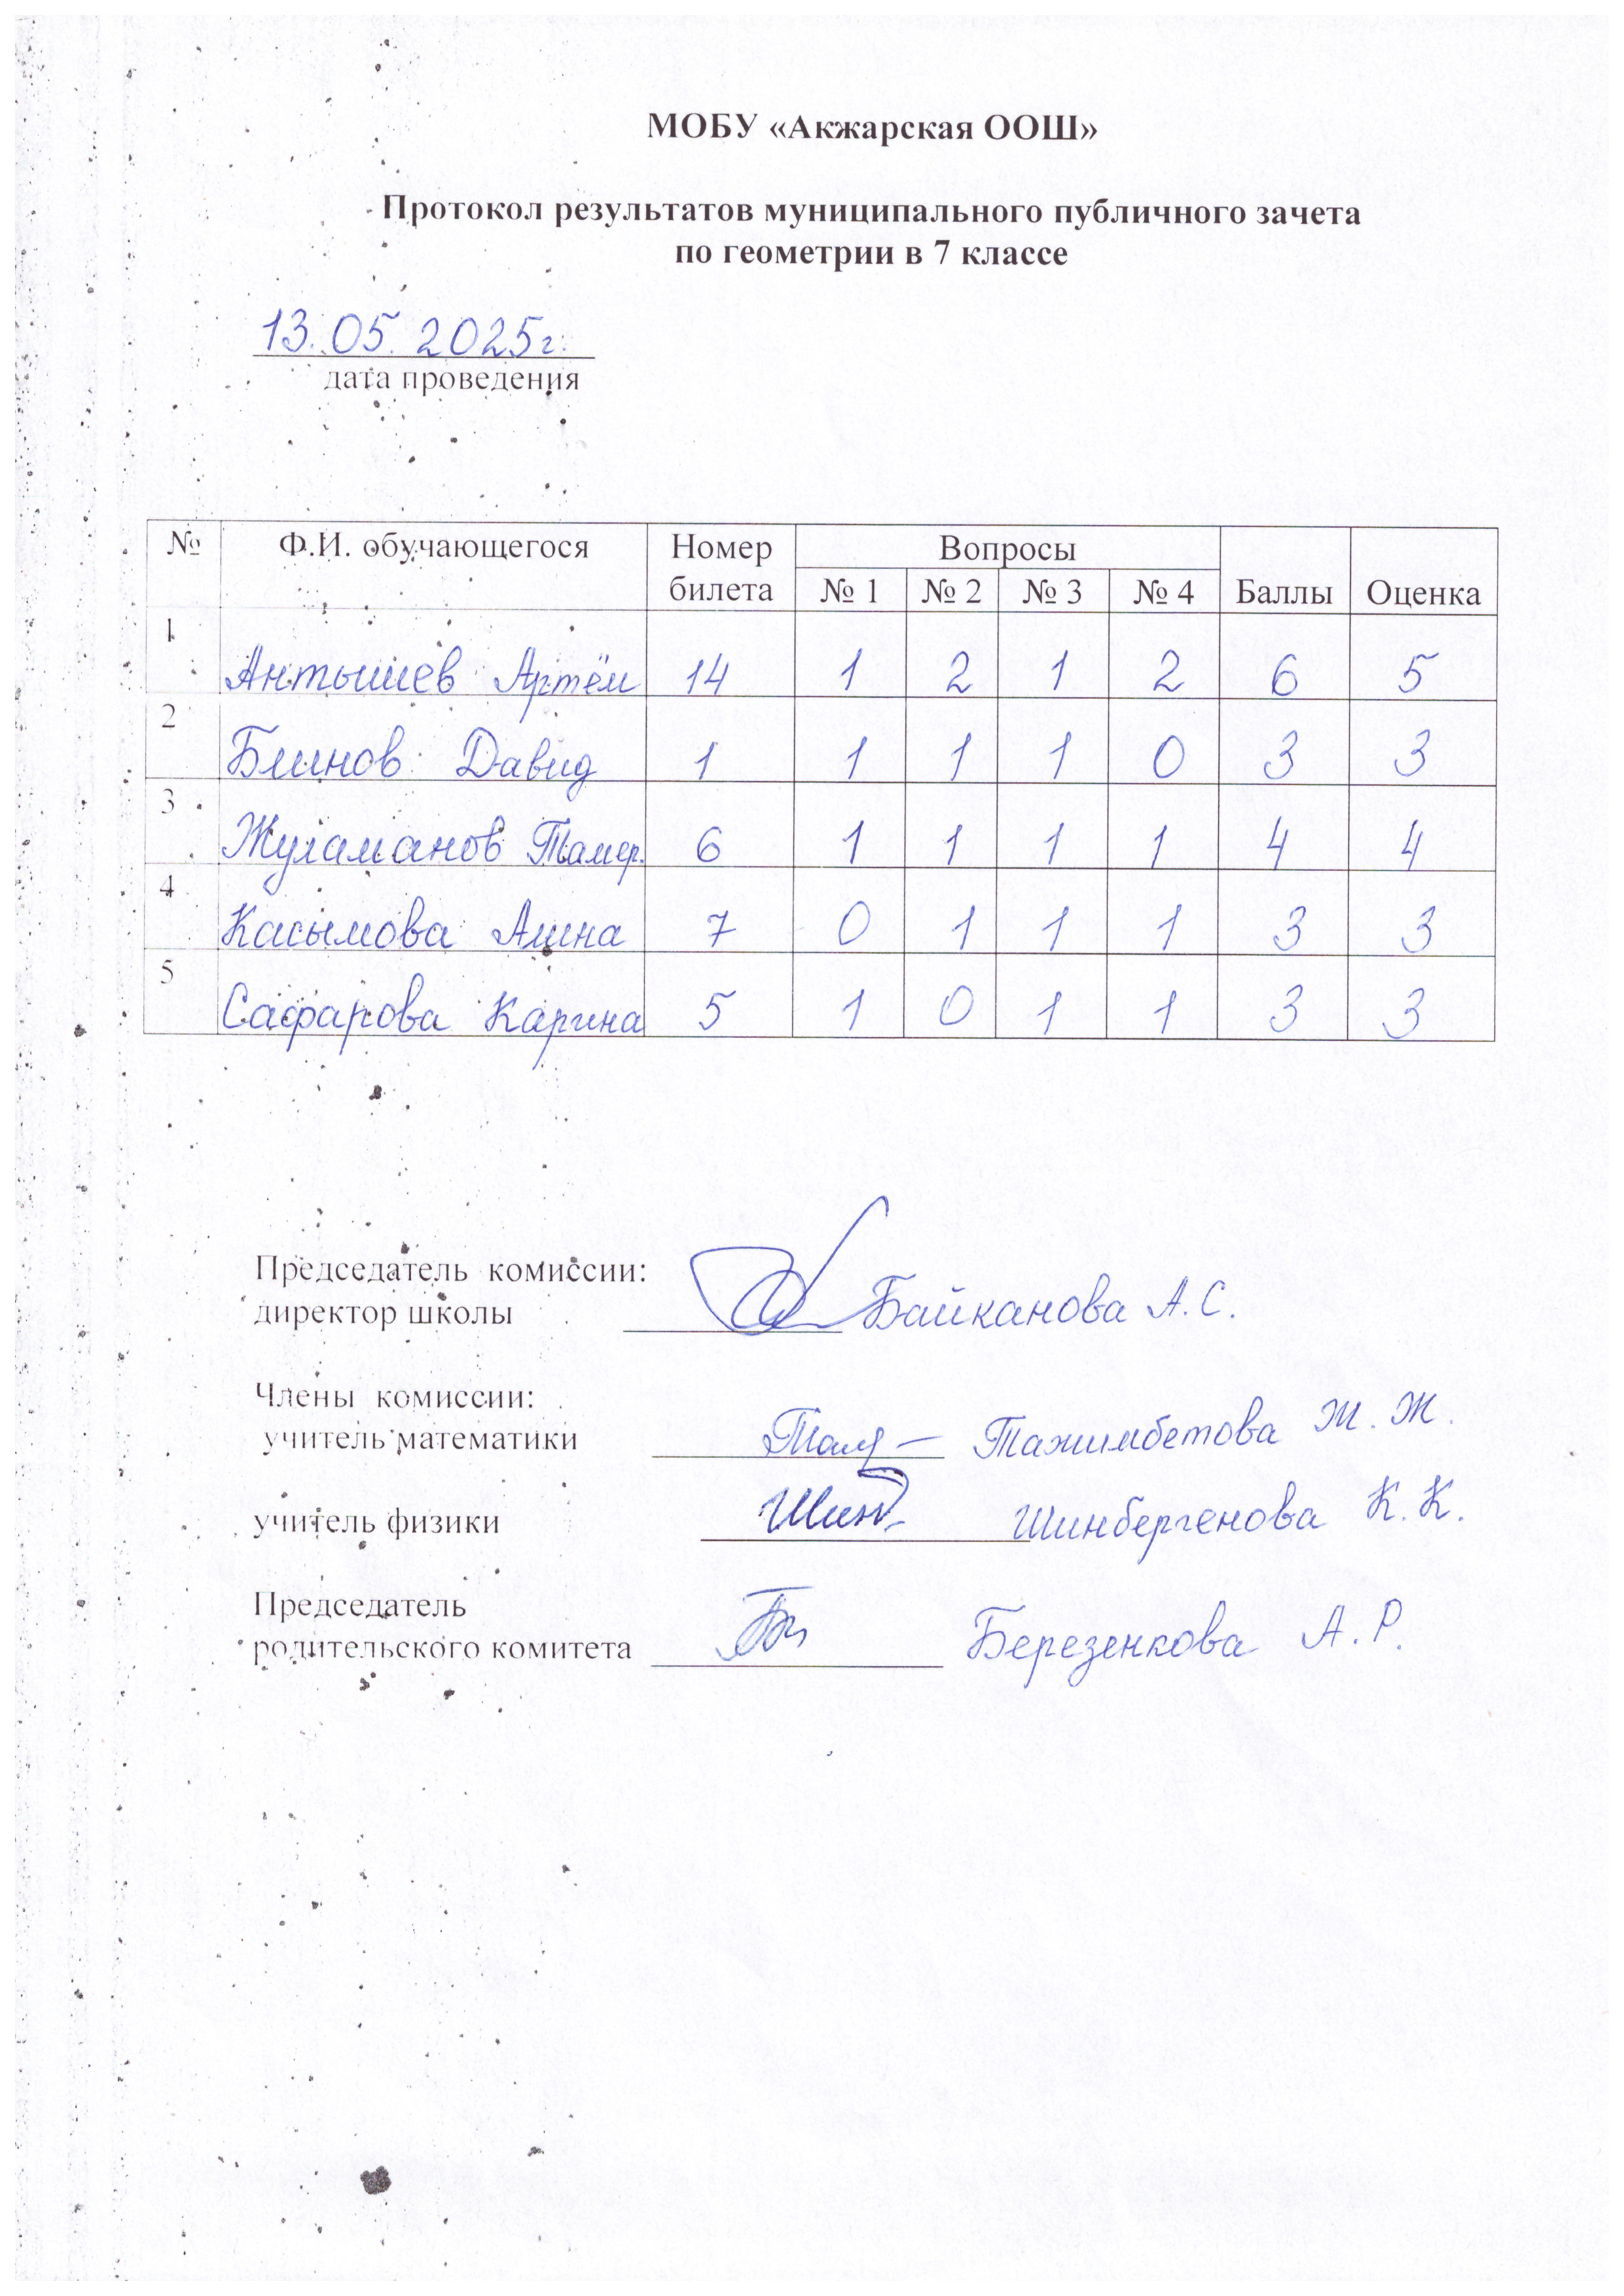 МОБУ «Акжарская ООШ»
Протокол результатов муниципального публичного зачета
по геометрии в 7 классе
13.05.2025г.
дата проведения
№ Ф.И. обучающегося Номер билета Вопросы Баллы Оценка
№ 1 № 2 № 3 № 4
1 Антышев Артём 14 1 2 1 2 6 5
2 Блинов Давид 1 1 1 1 0 3 3
3 Жуламанов Тамер. 6 1 1 1 1 4 4
4 Касымова Амина 7 0 1 1 1 3 3
5 Сафарова Карина 5 1 0 1 1 3 3
Председатель комиссии:
директор школы Байканова А.С.
Члены комиссии:
учитель математики Тажимбетова Ж.Ж.
учитель физики Шинбергенова К.К.
Председатель
родительского комитета Березенкова А.Р.